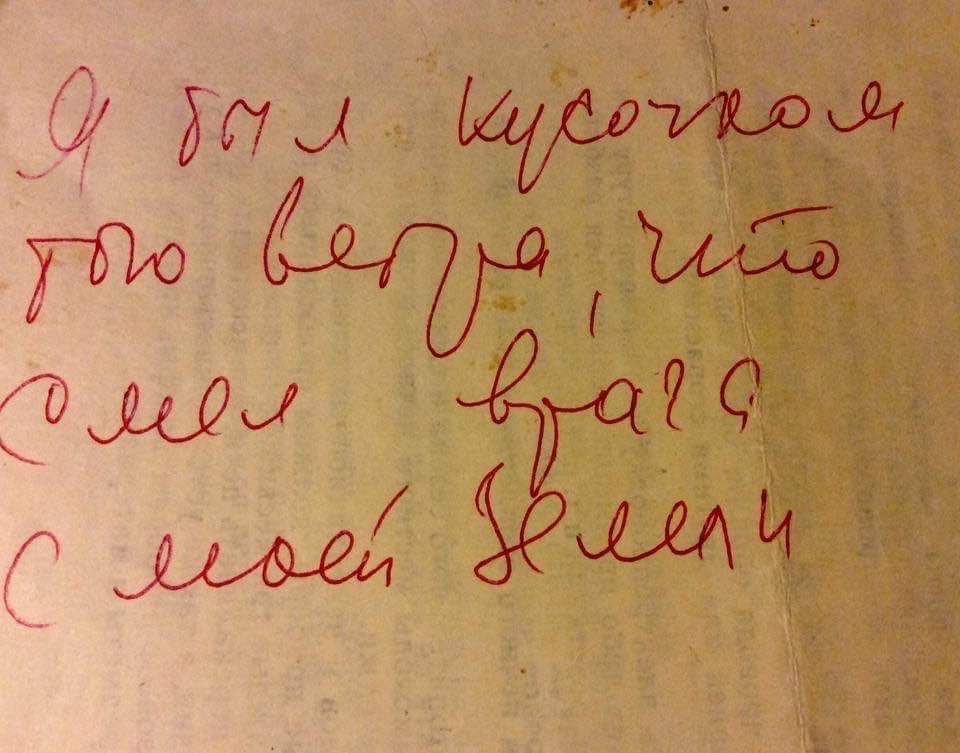 Я был кусочком
того ветра, что
смел врага
с моей земли